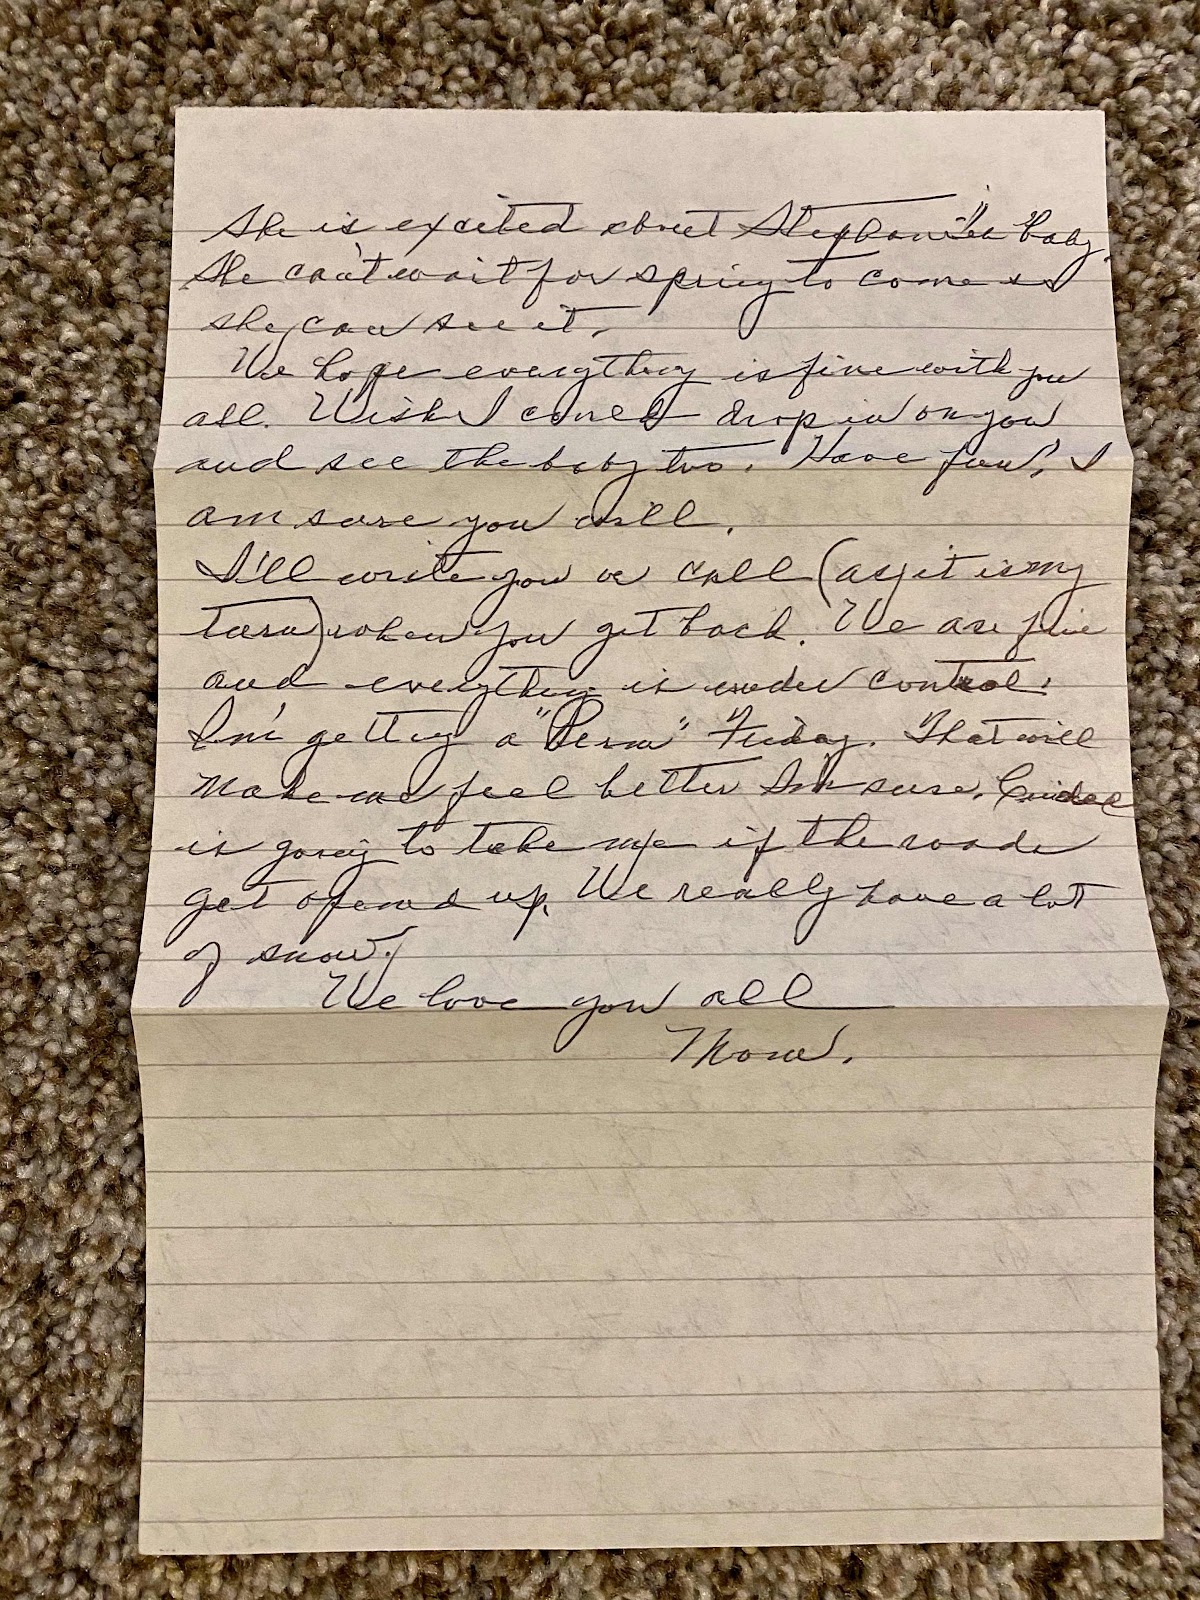 She is excited about Stephanie's baby.
She can't wait for spring to come so
she can see it.
We hope everything is fine with you
all. Wish I could drop in on you
and see the baby too. Have fun, I
am sure you will.
I'll write you or call (as it is my
turn) when you get back. We are fine
and everything is under control.
I'm getting a "Perm" Friday. That will
make me feel better I'm sure.
is going to take me if the roads
get opened up. We really have a lot
of snow.
We love you all
Mom.